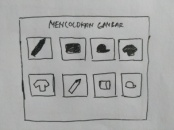 MENCOCOKKAN GAMBAR